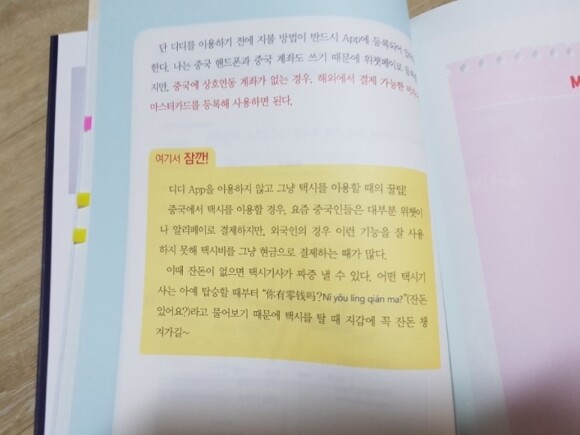 단 디디를 이용하기 전에 지불 방법이 반드시 App에 등록되어
한다. 나는 중국 핸드폰과 중국 계좌도 쓰기 때문에 위챗페이로
지만, 중국에 상호연동 계좌가 없는 경우, 해외에서 결제 가능한
마스터카드를 등록해 사용하면 된다.
여기서 잠깐!
디디 App을 이용하지 않고 그냥 택시를 이용할 때의 꿀팁!
중국에서 택시를 이용할 경우, 요즘 중국인들은 대부분 위챗이
나 알리페이로 결제하지만, 외국인의 경우 이런 기능을 잘 사용
하지 못해 택시비를 그냥 현금으로 결제하는 때가 많다.
이때 잔돈이 없으면 택시기사가 짜증 낼 수 있다. 어떤 택시기
사는 아예 탑승할 때부터 “你有零钱吗?Nǐ yǒu líng qián ma?”(잔돈
있어요?)라고 물어보기 때문에 택시를 탈 때 지갑에 꼭 잔돈 챙
겨가길~
M